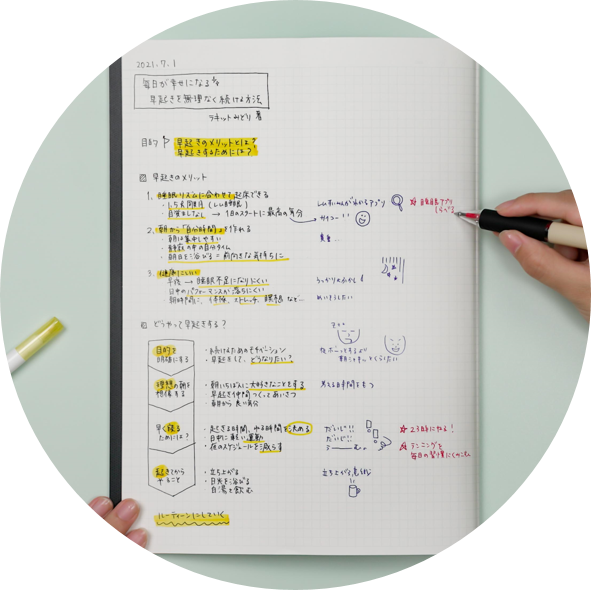 2021.7.1
毎日が幸せになる
早起きを無理なく続ける方法
ラキットみどり 著
目的
早起きのメリットとは?
早起きするためには?
早起きのメリット
1. 睡眠リズムに合わせて起床できる
・1.5h周期 (レム睡眠)
・目覚ましなし → 1日のスタートに最高の気分
サイコー!!
☆ 睡眠アプリ
しらべる
2. 朝から「自分時間」を作れる
・朝は集中しやすい
・静寂の中の自分タイム
・朝日を浴びる = 前向きな気持ちに
3. 健康にいい
早寝 → 睡眠不足になりにくい
日中のパフォーマンスが落ちにくい
どうやって早起きする?
目的を
明確にする
・続けるためのモチベーション
・早起きをして、どうなりたい?
理想の朝を
想像する
・朝いちばんに大好きなことをする
・早起き仲間つくってあいさつ
・朝から良い気分
早く寝る
ためには?
・起きる時間、寝る時間を決める
・日中に軽い運動
・夜のスケジュールを減らす
だいじ!!
だいじ!!
☆ 23時にねる!
☆ ランニングを
起きてから
やること
・立ち上がる
・日光を浴びる
・白湯を飲む
ルーティーンにしていく